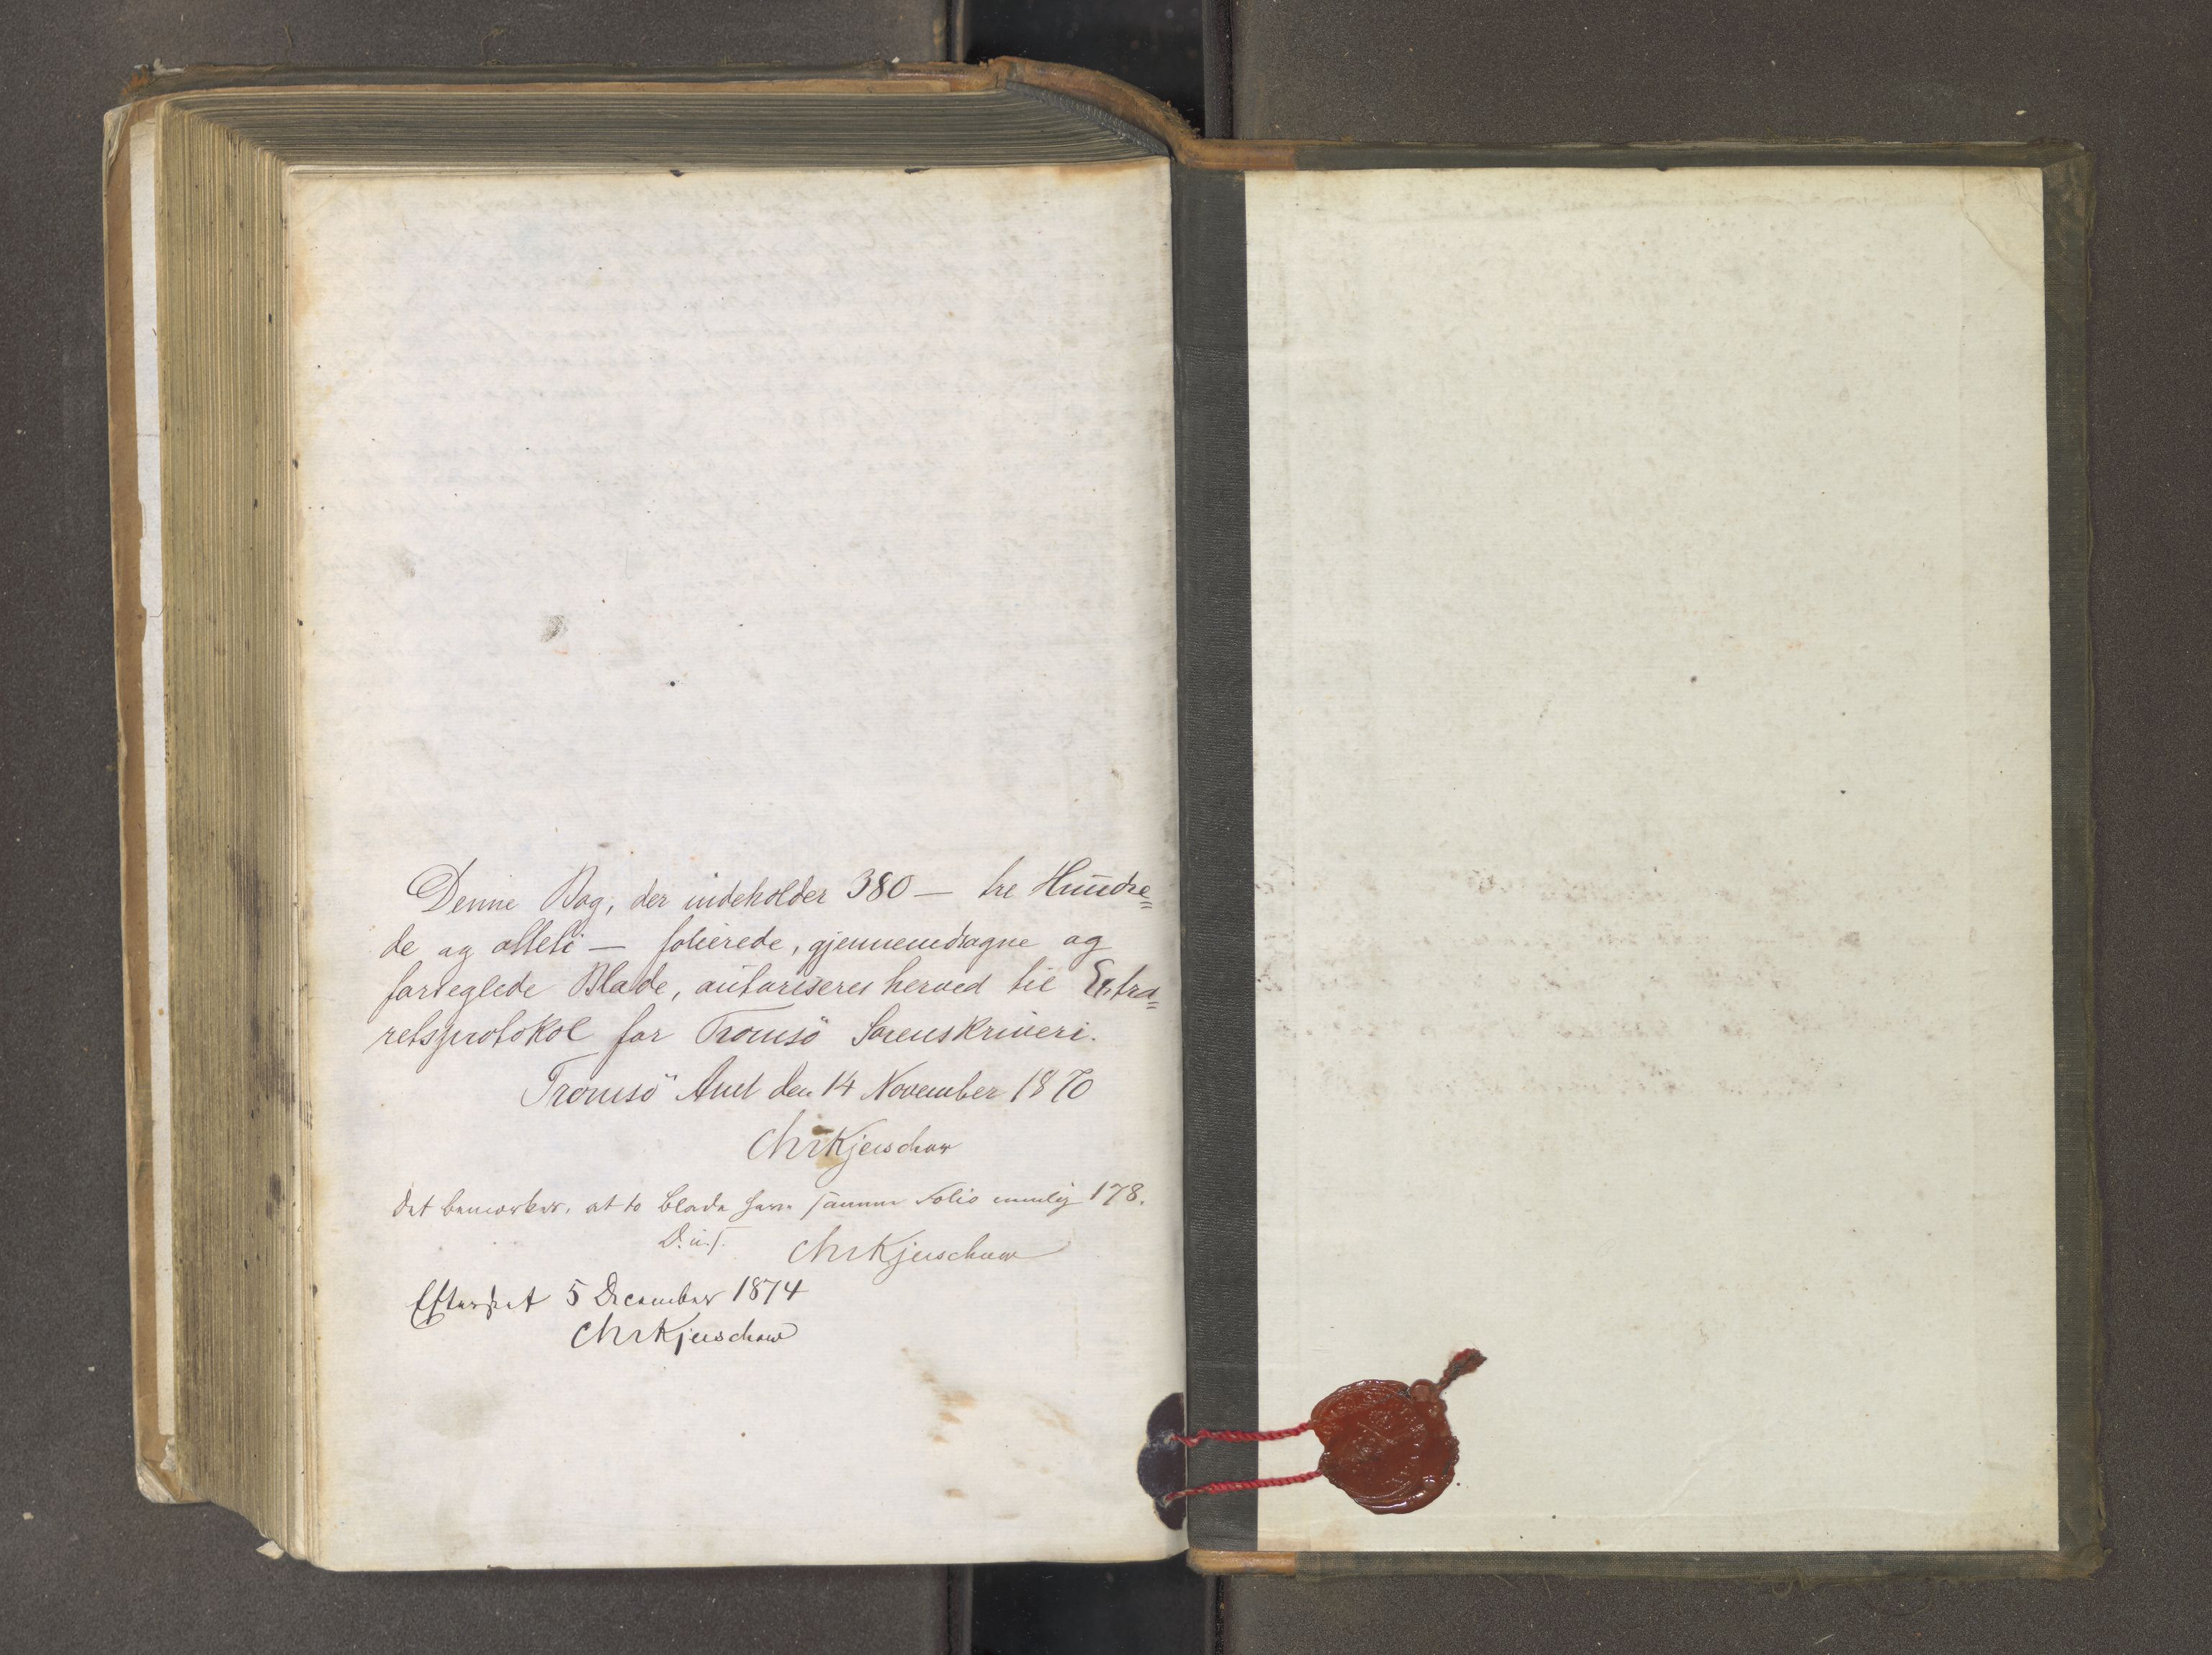 Denne Bog, der indeholder 380 — tre Hundre=
de og otteti — folierede, gjennemdragne og
forseglede Blade, autoriseres herved til Extra=
retsprotokol for Tromsö Sorenskriveri.
Tromsö Amt den 14 November 1870
Chr Kjerschow
Det bemærkes, at to Blade have samme Folio nemlig 178.
D. u. s.
Chr Kjerschow
Efterseet 5 December 1874
Chr Kjerschow